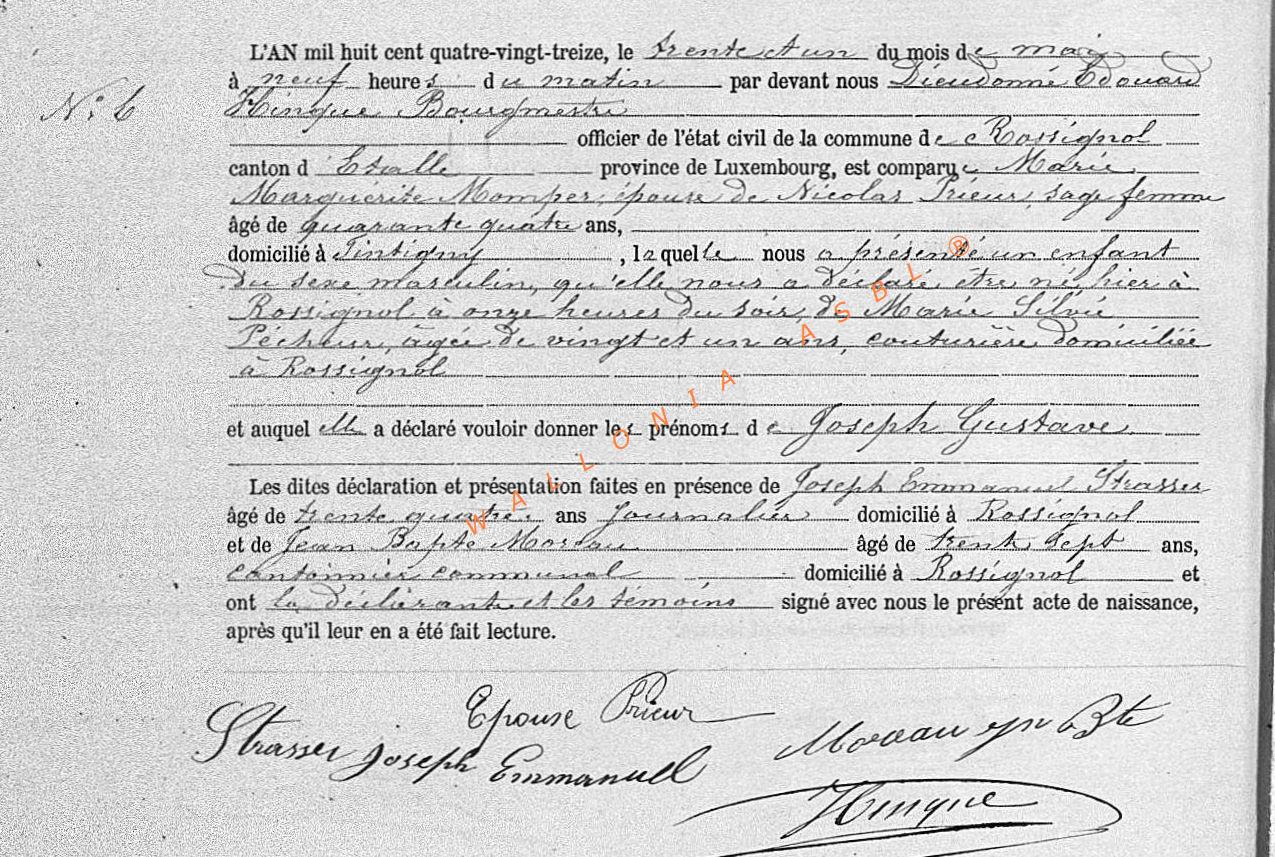 L'AN mil huit cent quatre-vingt-treize, le trente et un du mois de mai
à neuf heures du matin par devant nous Dieudonné Edouard
N° 6
Hinque Bourgmestre
officier de l'état civil de la commune de Rossignol
canton d'Etalle province de Luxembourg, est comparue Marie
Marguérite Momper, épouse de Nicolas Prieur, sage femme
âgé de quarante quatre ans,
domicilié à Tintigny, laquelle nous a présenté un enfant
du sexe masculin, qu'elle nous a déclaré être né hier à
Rossignol à onze heures du soir, de Marie Silvie
Pécheur, âgée de vingt et un ans, couturière domiciliée
à Rossignol
et auquel elle a déclaré vouloir donner les prénoms de Joseph Gustave
Les dites déclaration et présentation faites en présence de Joseph Emmanuel Strasser
âgé de trente quatre ans journalier domicilié à Rossignol
et de Jean Bapte Moreau âgé de trente sept ans,
cantonnier communal domicilié à Rossignol et
ont la déclarante et les témoins signé avec nous le présent acte de naissance,
après qu'il leur en a été fait lecture.
Epouse Prieur
Strasser Joseph Emmanuel
Moreau jn Bte
Hinque
WALLONIA ASBL ®